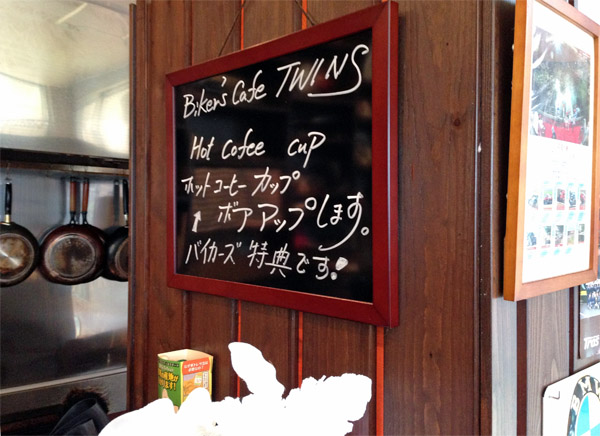 Biker's Cafe TWINS
Hot cofee cup
ホットコーヒー カップ
↑ ボア アップします。
バイカーズ 特典です!